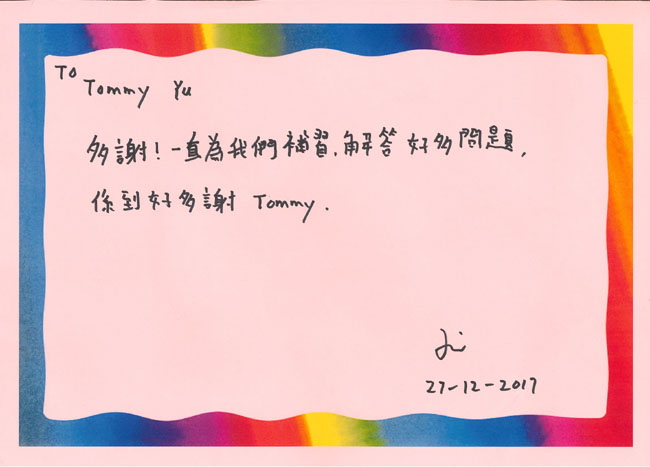 To
Tommy Yu
多謝！一直為我們補習，解答好多問題，
係到好多謝 Tommy.
27-12-2017